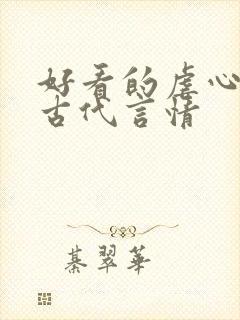 好看的虐心
古代言情
綦翠華